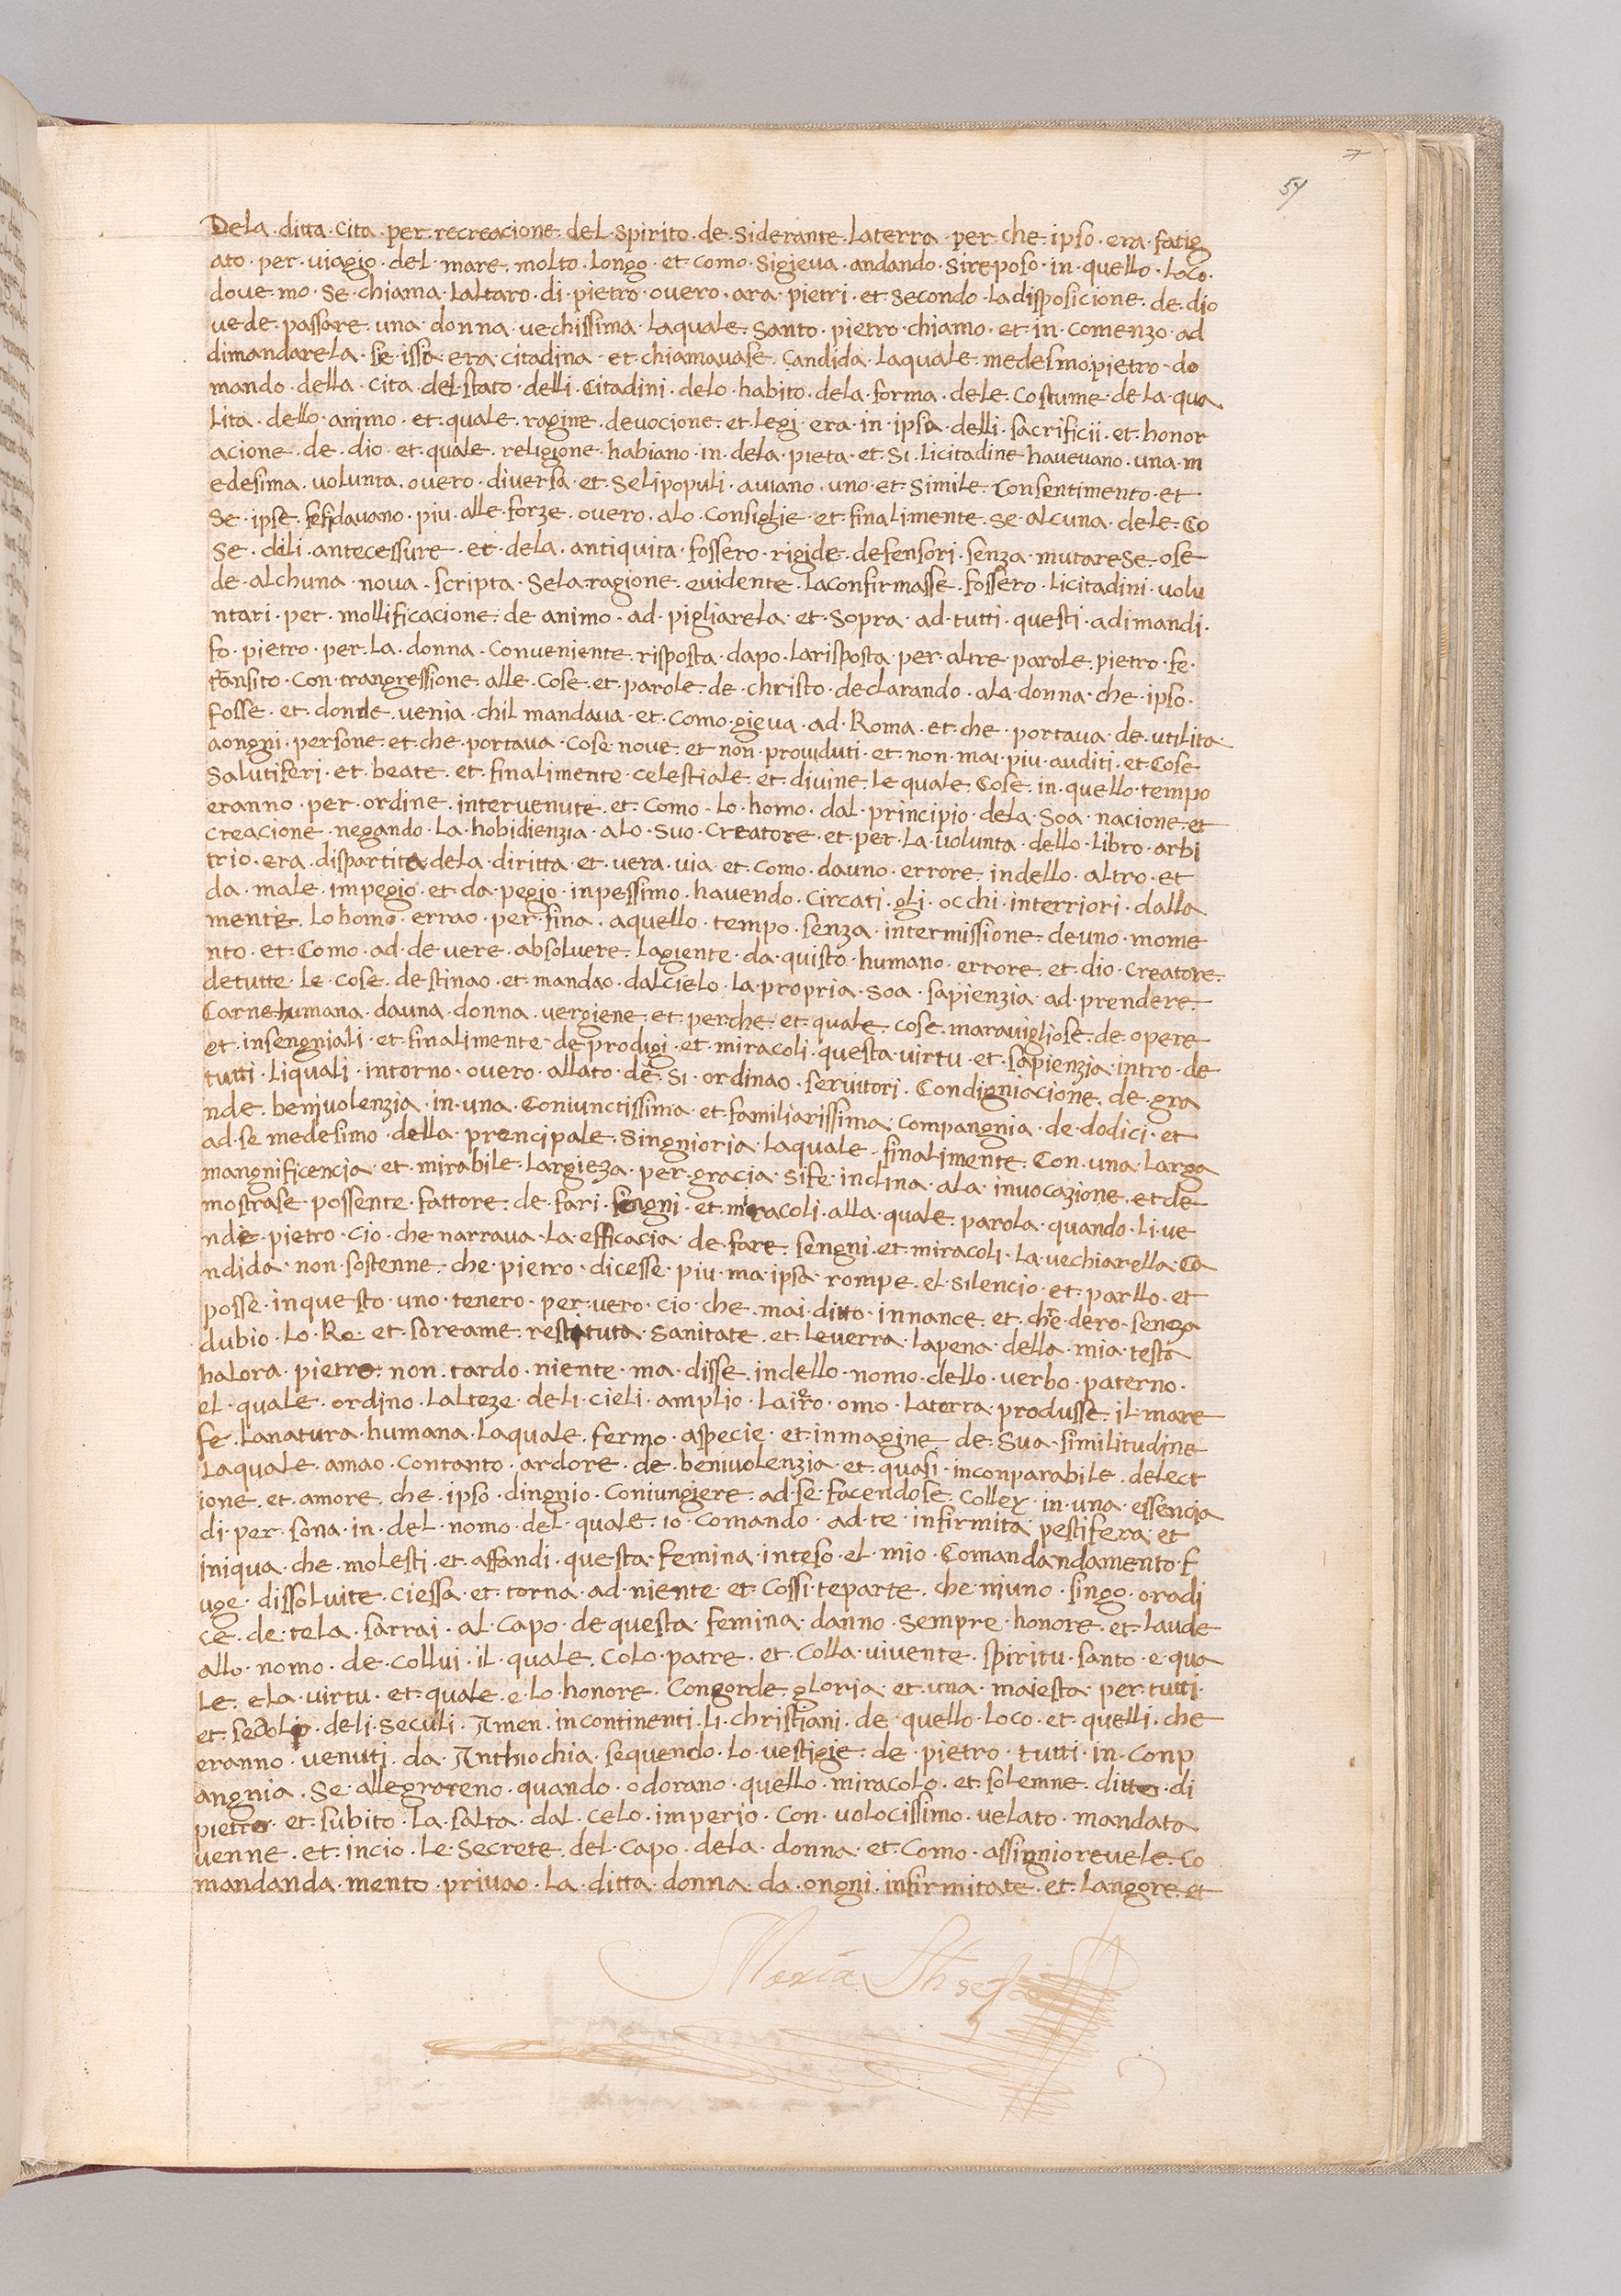 57
Dela · ditta · Cita · per · recreacione · del · spirito · de · siderante · Laterra · per · che · ipso · era · fatig
ato · per · viagio · del · mare · molto · longo · et · como · sigieva · andando · sireposo · in · quello · Loco ·
dove · mo · se · chiama · Laltaro · di · pietro · overo · ara · pietri · et · secondo · Ladisposicione · de · dio
vede · passare · una · donna · vechissima · Laquale · santo · pietro · chiamo · et · in · comenzo · ad
dimandarela · se · issa · era · citadina · et · chiamavase · Candida · Laquale · medesmo · pietro · do
mando · della · cita · del · stato · delli · Citadini · delo · habito · dela · forma · dele · Costume · de · la · qua
Lita · dello · animo · et · quale · ragine · devocione · et · Legi · era · in · ipsa · delli · sacrificii · et · honor
acione · de · dio · et · quale · religione · habiano · in · dela · pieta · et · Si · Licitadine · havevano · una · m
edesima · volunta · overo · diversa · et · Selipopuli · aviano · uno · et · simile · Consentimento · et
se · ipse · sefidavano · piu · alle · forze · overo · alo · Consiglie · et · finalimente · se · alcuna · dele · Co
se · deli · antecessure · et · dela · antiquita · fossero · rigide · defensori · senza · mutarese · ose
de · alchuna · nova · scripta · Sela · ragione · evidente · Laconfirmasse · fossero · Licitadini · volu
ntari · per · mollificacione · de · animo · ad · pigliarela · et · sopra · ad · tutti · questi · adimandi ·
fo · pietro · per · La · donna · Conveniente · risposta · dapo · Larisposta · per · altre · parole · pietro · fe ·
transito · Con · trangressione · alle · Cose · et · parole · de · christo · declarando · ala · donna · che · ipso ·
fosse · et · donde · venia · chil mandava · et · Como · gieva · ad · Roma · et · che · portava · de · utilita ·
aongni · persone · et · che · portava · Cose · nove · et · non · providuti · et · non · mai · piu · auditi · et · Cose
Salutiferi · et · beate · et · finalimente · celestiale · et · divine · le quale · Cose · in · quello · tempo
eranno · per · ordine · intervenute · et · Como · lo · homo · dal · principio · dela · Soa · nacione · et
creacione · negando · La · hobidienzia · alo · suo · Creatore · et · per · La · volunta · dello · Libro · arbi
trio · era · dispartita · dela · diritta · et · vera · via · et · como · dauno · errore · indello · altro · et
da · male · impegio · et · da · pegio · inpessimo · havendo · Circati · gli · occhi · interriori · dalla
mente · Lo homo · errao · per · fina · aquello · tempo · senza · intermissione · deuno · mome
nto · et · Como · ad · devere · absolvere · Lagiente · da · quisto · humano · errore · et · dio · Creatore ·
detutte · Le · Cose · destinao · et · mandao · dalcielo · La · propria · Soa · sapienzia · ad · prendere
Carne humana · dauna · donna · vergiene · et · perche · et · quale · cose · maravigliose · de · opere
et · insengniali · et · finalimente · de prodigi · et · miracoli · questa · virtu · et · sapienzia · intro · de
tutti · Liquali · intorno · overo · allato · de · Si · ordinao · servitori · Condigniacione · de · gra
nde · benivolenzia · in · una · Coniunctissima · et · familiarissima · Compangnia · de · dodici · et
ad · se medesimo · della · prencipale · singnioria · Laquale · finalimente · Con · una · Larga
mangnificencia · et · mirabile · Largieza · per · gracia · sife · inclina · ala · invocazione · et de
mostrase · possente · fattore · de · fari · sengni · et · miracoli · alla · quale · parola · quando · Li · ve
nde · pietro · Cio · che · narrava · La · efficacia · de · fare · sengni · et · miracoli · La · vechiarella · Ca
ndida · non · sostenne · che · pietro · dicesse · piu · ma · ipsa · rompe · el · silencio · et · parllo · et
posse · inquesto · uno · tenero · per · vero · cio · che · mai · ditto · innance · et · che · dero · senza
dubio · Lo · Re · et · soreame · restituta · Sanitate · et · Leverra · Lapena · della · mia · testa
halora · pietro · non · tardo · niente · ma · disse · indello · nomo · dello · verbo · paterno ·
el · quale · ordino · Lalteze · deli · cieli · amplio · Lairo · omo · Laterra · produsse · il · mare
fe · Lanatura · humana · Laquale · fermo · aspecie · et · inmagine · de · Sua · similitudine
Laquale · amao · Contanto · ardore · de · benivolenzia · et · quasi · inconparabile · delect
ione · et · amore · che · ipso · dingnio · Coniungiere · ad · se · facendose · in · una · essencia
di · per · sona · in · del · nomo · del · quale · io · Comando · ad · te · infirmita · pestifera · et
iniqua · che · molesti · et · affandi · questa · femina · inteso · el · mio · Comandandamento · f
uge · dissolvite · ciessa · et · torna · ad · niente · et · Cossi · teparte · che · niuno · singo · oradi
ce · de · tela · sarrai · al · Capo · de questa · femina · danno · Sempre · honore · et · Laude
allo · nomo · de · Collui · il · quale · Colo · patre · et · Colla · vivente · spiritu · santo · e · qua
Le · ela · virtu · et · quale · e · lo · honore · Congorde · gloria · et · una · maiesta · per · tutti ·
et · deli · seculi · Amen · incontinenti · Li · christiani · de · quello · Loco · et · quelli · che
eranno · venuti · da · Anthiochia · sequendo · Lo · vestigie · de · pietro · tutti · in · Conp
angnia · Se · allegrareno · quando · odorano · quello · miracolo · et · solemne · ditto · di
pietro · et · subito · La · salta · dal · celo · imperio · Con · volocissimo · velato · mandata
venne · et · incio · Le · Secrete · del · Capo · dela · donna · et · Como · assinniorevele · Co
mandanda · mento · privao · La · ditta · donna · da · ongni · infirmitate · et · Langore · et
Maria